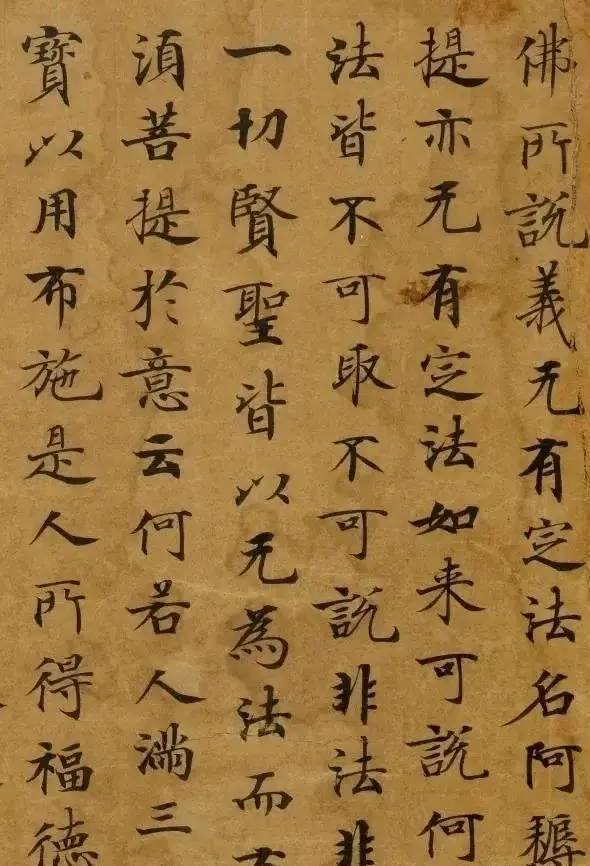 佛所說義无有定法名阿耨
提亦无有定法如来可說何
法皆不可取不可說非法非
一切賢聖皆以无為法而有
湏菩提於意云何若人滿三
寶以用布施是人所得福德